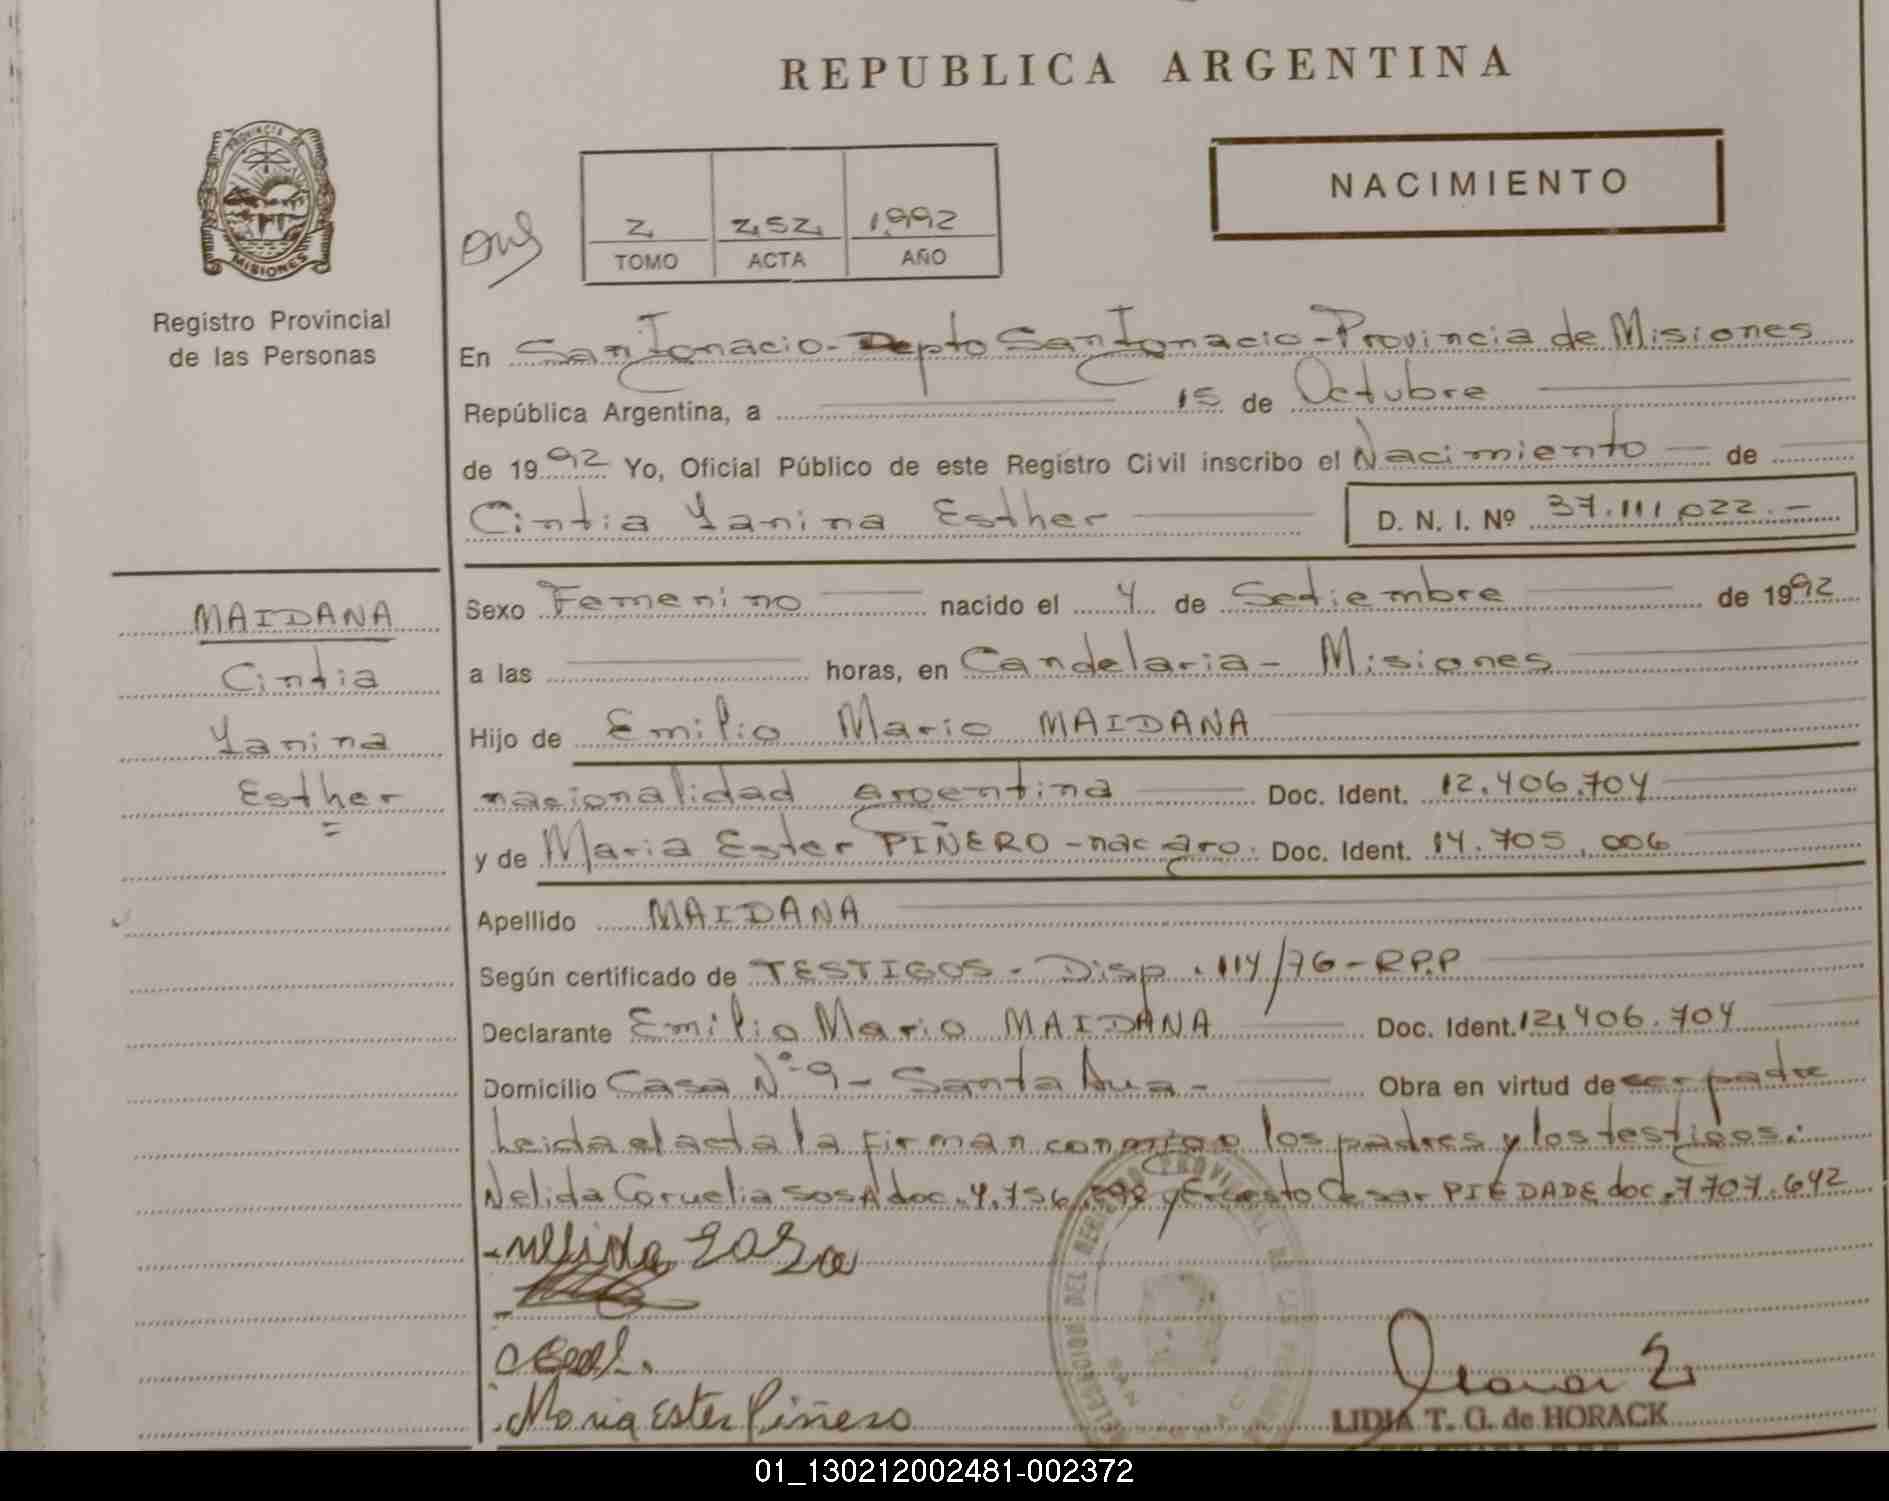 REPUBLICA ARGENTINA
PROVINCIA DE
MISIONES
Registro Provincial
de las Personas
2 252 1.992
TOMO ACTA AÑO
NACIMIENTO
En San Ignacio - Depto San Ignacio - Provincia de Misiones
República Argentina, a 15 de Octubre
de 1992 Yo, Oficial Público de este Registro Civil inscribo el Nacimiento de
Cintia Yanina Esther
D. N. I. Nº 37.111.022.-
MAIDANA
Cintia
Yanina
Esther
Sexo Femenino nacido el 4 de Setiembre de 1992
a las horas, en Candelaria - Misiones
Hijo de Emilio Mario MAIDANA
nacionalidad argentina Doc. Ident. 12.406.704
y de Maria Ester PIÑERO - nac arg. Doc. Ident. 14.705.006
Apellido MAIDANA
Según certificado de TESTIGOS - Disp. 114/76 - R.P.P
Declarante Emilio Mario MAIDANA Doc. Ident. 12.406.704
Domicilio Casa Nº 9 - Santa Ana - Obra en virtud de ser padre
Leida el acta la firman conmigo los padres y los testigos:
Nelida Cornelia SOSA doc. 4.756. y Ernesto Cesar PIEDADE doc. 7707.642
Nelida Sosa
Maria Ester Piñero
LIDIA T. G. de HORACK
01_130212002481-002372